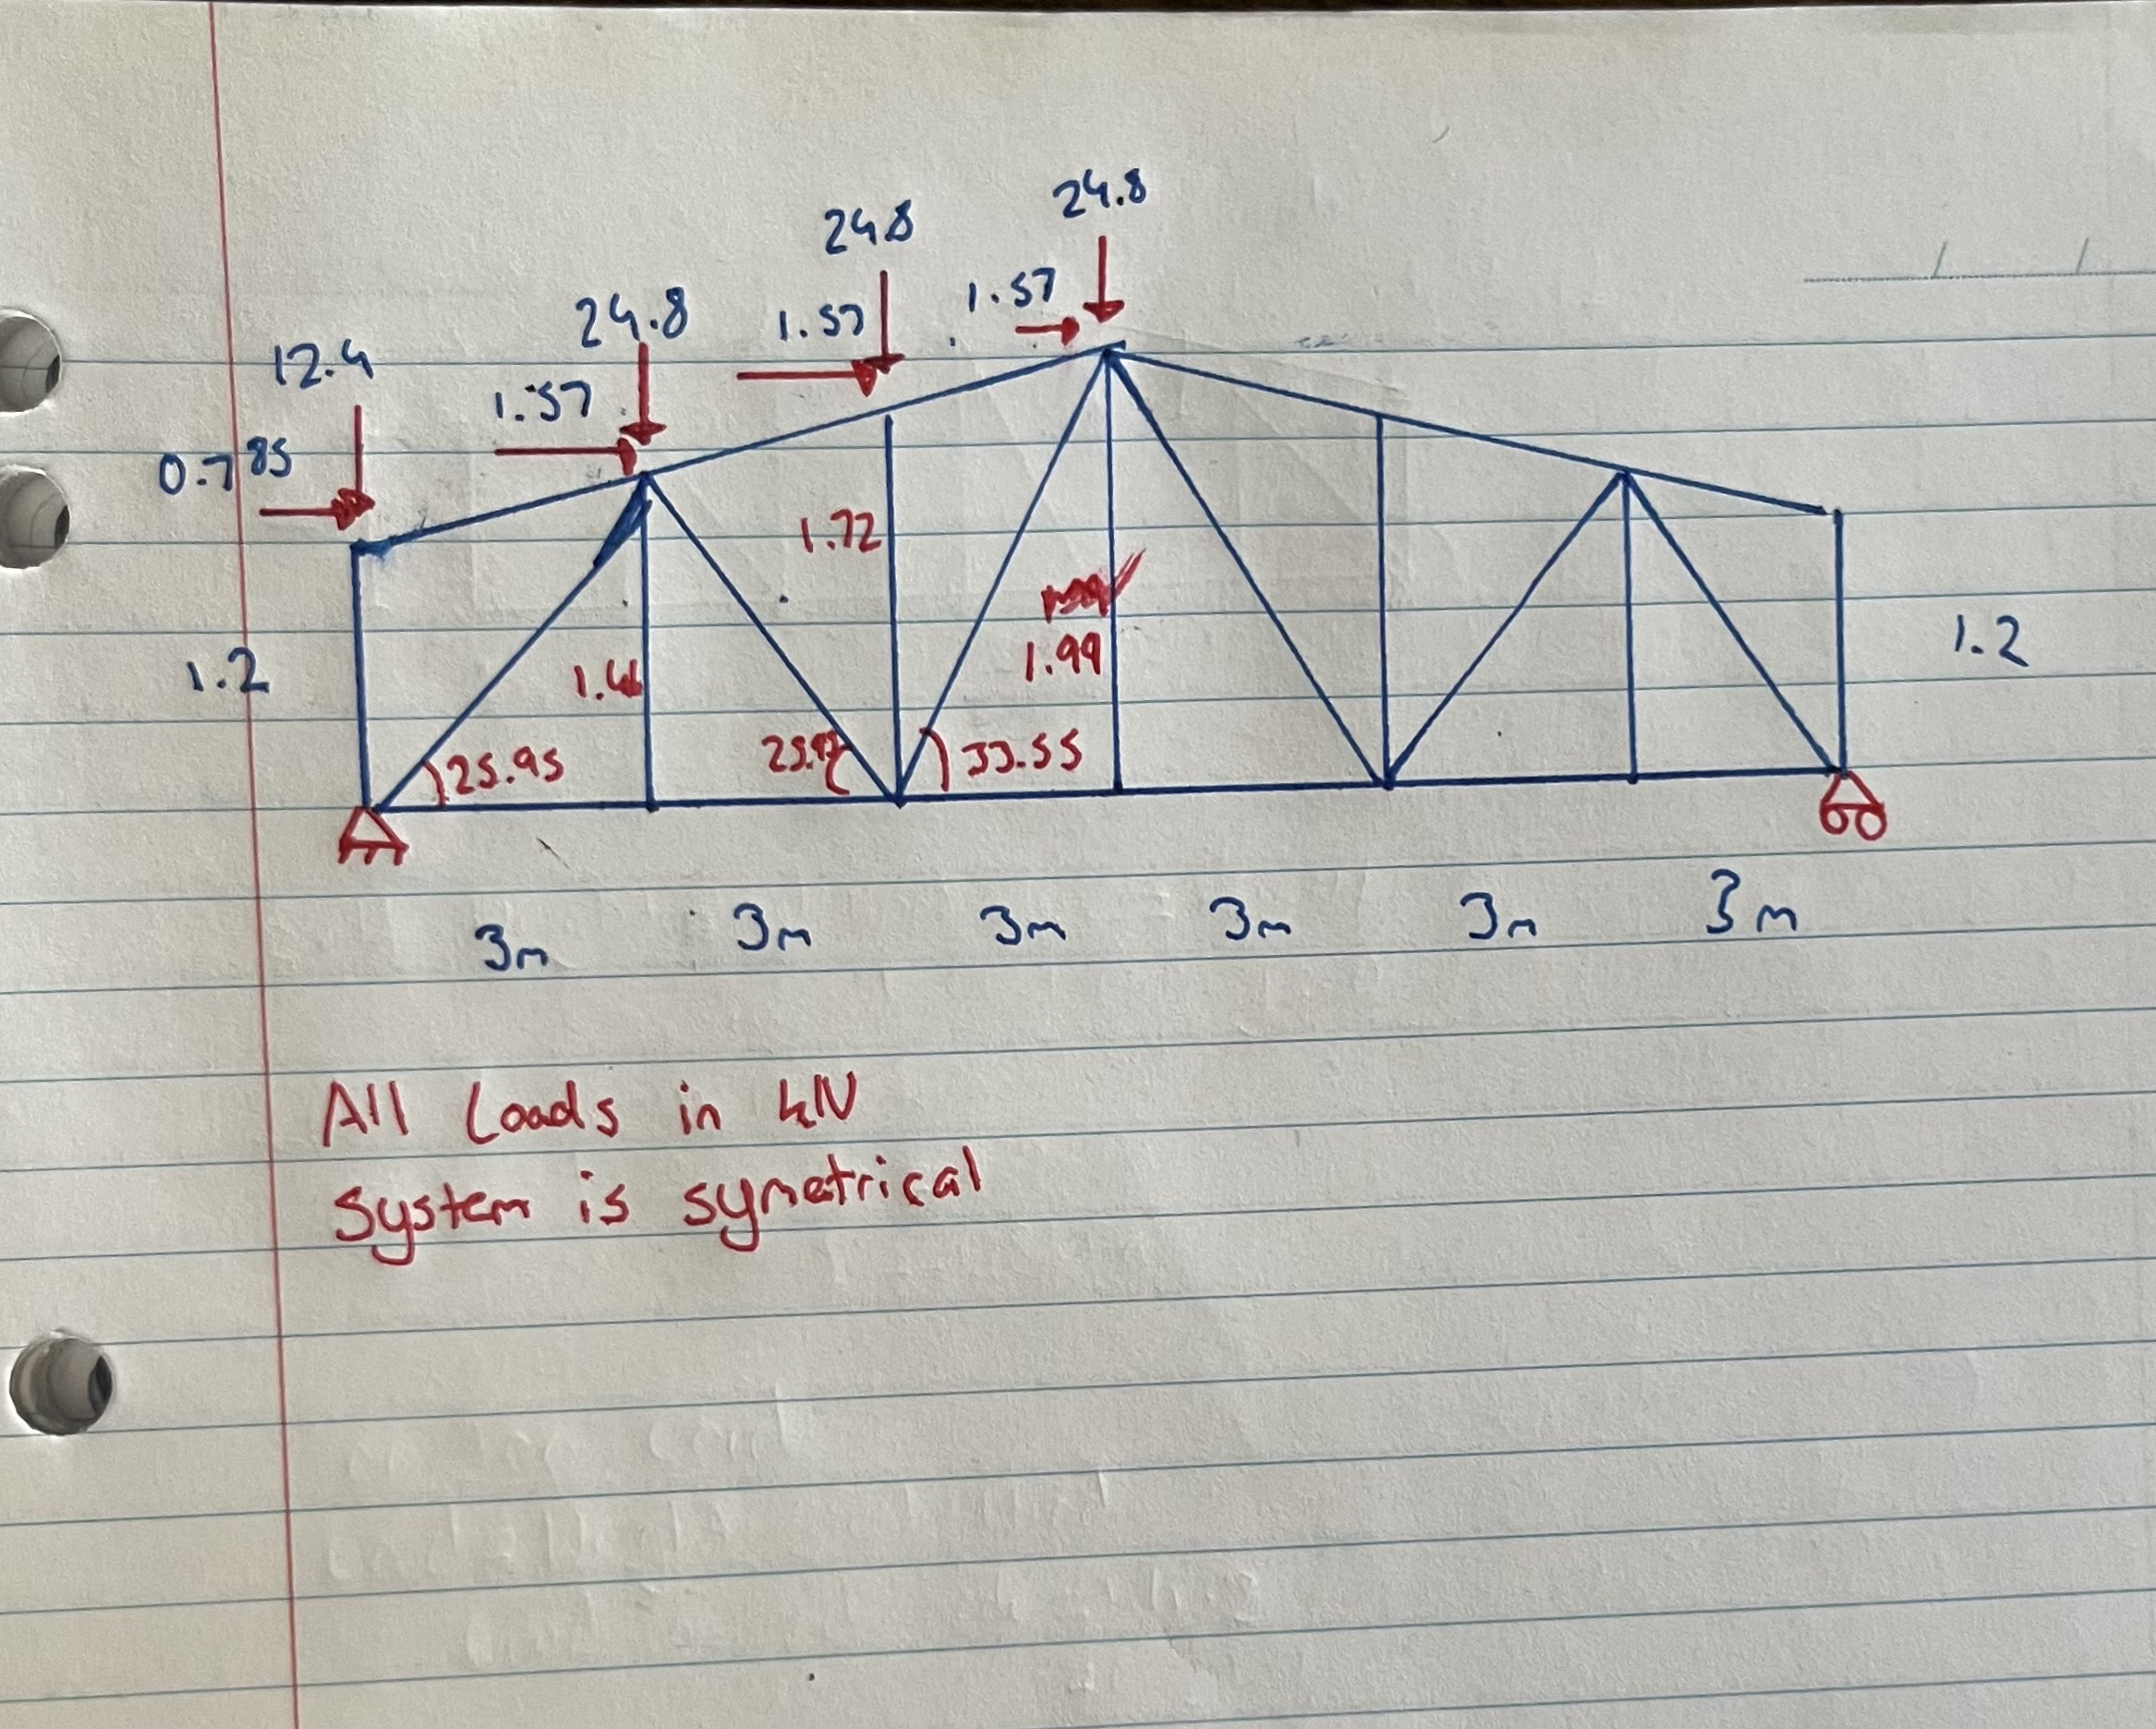 24.8
24.8
1.57
24.8
1.57
12.4
1.57
0.785
1.72
1.99
1.2
1.2
25.95
33.55
3m
3m
3m
3m
3m
3m
All Loads in kN
System is symetrical